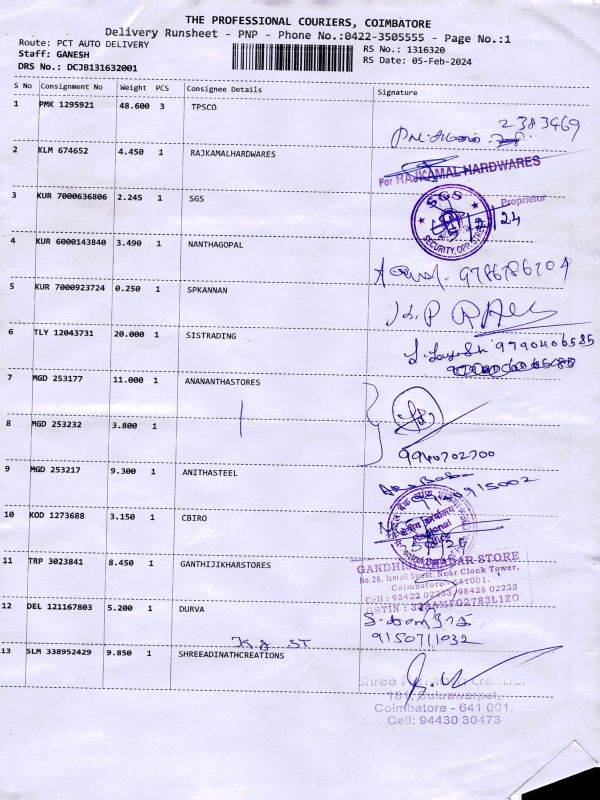 THE PROFESSIONAL COURIERS, COIMBATORE
Delivery Runsheet - PNP - Phone No.:0422-3505555 - Page No.:1
Route: PCT AUTO DELIVERY
Staff: GANESH
DRS No.: DCJB131632001
RS No.: 1316320
RS Date: 05-Feb-2024
S No Consignment No Weight PCS Consignee Details Signature
1 PMK 1295921 48.600 3 TPSCO
2383469
2 KLM 674652 4.450 1 RAJKAMALHARDWARES
For RAJKAMAL HARDWARES
Proprietor
3 KUR 7000636806 2.245 1 SGS
SGS
SECURITY, OPP.
4 KUR 6000143840 3.490 1 NANTHAGOPAL
9786786204
5 KUR 7000923724 0.250 1 SPKANNAN
6 TLY 12043731 20.000 1 SISTRADING
9790406585
7 MGD 253177 11.000 1 ANANANTHASTORES
8 MGD 253232 3.800 1
9940702700
9 MGD 253217 9.300 1 ANITHASTEEL
10 KOD 1273688 3.150 1 CBIRO
क्षेत्रीय कार्यालय
Regional
11 TRP 3023841 8.450 1 GANTHIJIKHARSTORES
GANDHI STORE
No.26, Ismail Street, Near Clock Tower,
Coimbatore - 641001.
Cell : 93422 02233/98428 02233
12 DEL 121167803 5.200 1 DURVA
9150711032
K.G ST
13 SLM 338952429 9.850 1 SHREEADINATHCREATIONS
Shree Creation
181, Sukrawarpet,
Coimbatore - 641 001.
Cell: 94430 30473